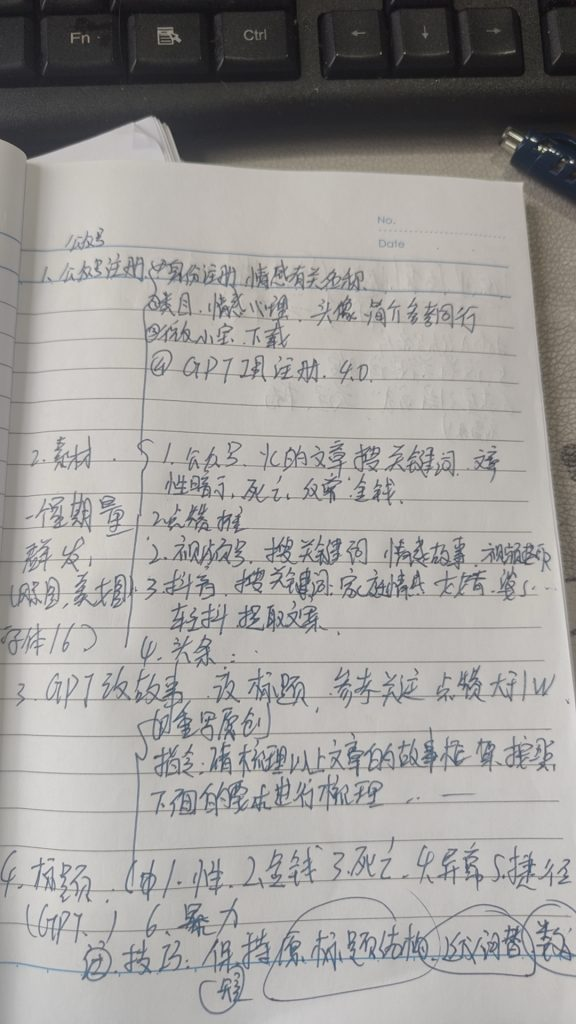 Fn
Ctrl
←
↓
→
No.
Date
公众号
1. 公众号注册 ①身份注册 情感有关名称
②类目. 情感心理. 头像 简介参考同行
下载
④ GPT 注册. 4.0.
2. 素材 . 1. 公众号. 的文章 搜 关键词.
性暗示. 死亡. 金钱.
一个星期量 2 点赞 推
群发, 2. 视频号. 搜 关键词 情感故事. 视频
3. 抖音. 搜关键词. 家庭情感
字体16) 轻抖 提取文案.
4. 头条 . :
3. GPT 改故事 改标题. 参考关注 点赞大于1W
的重写原创
指令: 请梳理以上文章的故事框架. 按照
下面的要求进行梳理 ... —
4. 标题. 1. 性. 2. 金钱 3. 死亡. 4. 异常 5. 捷径
(GPT. ) 6. 暴力
技巧: 保持原标题结构. 近义词替